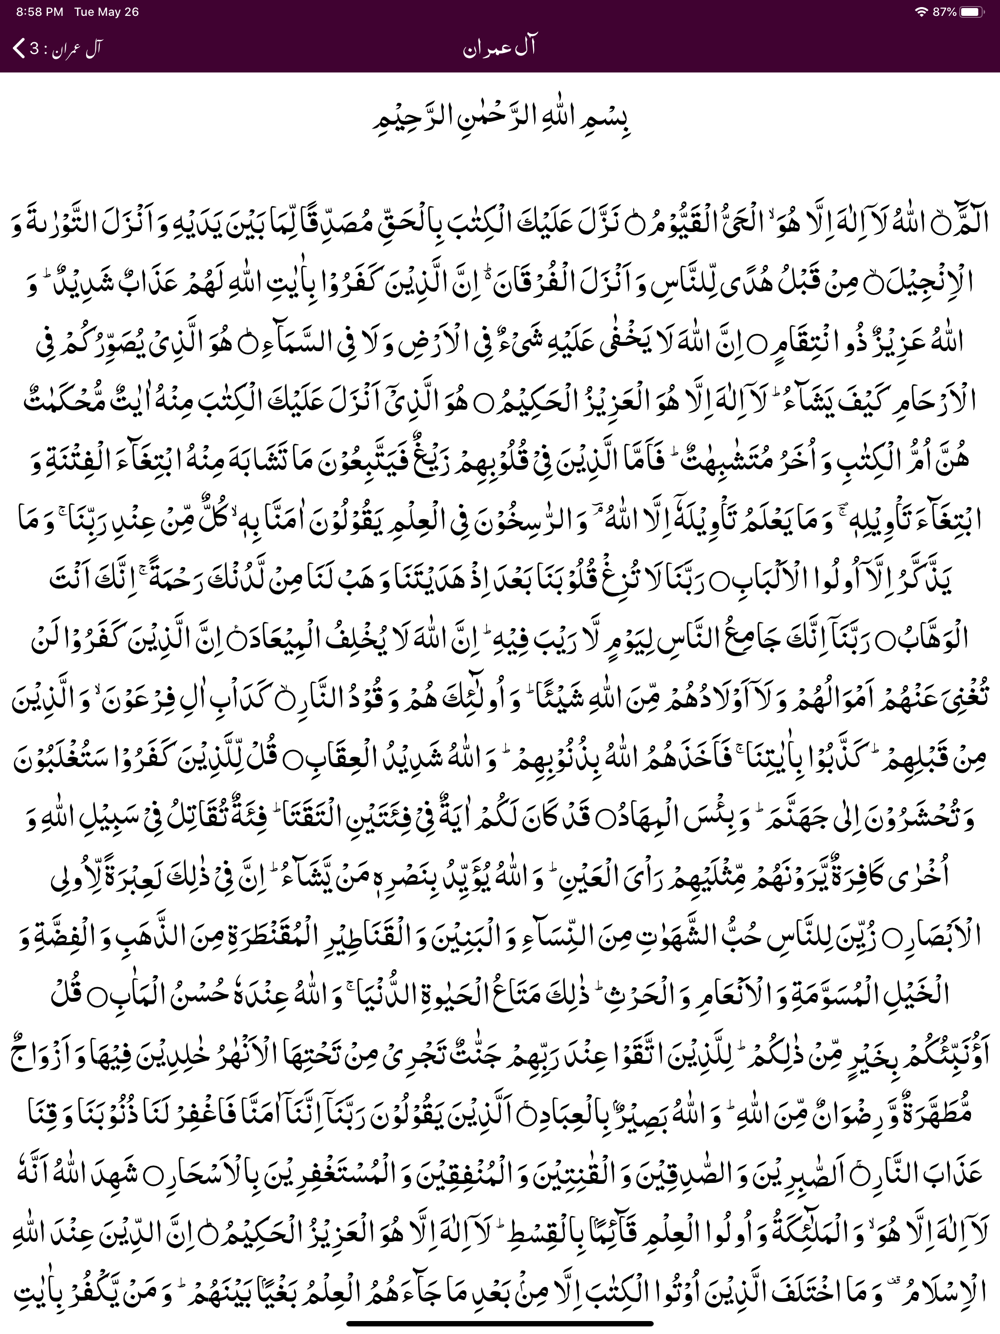 8:58 PM Tue May 26 87%
آل عمران : 3 آل عمران
بِسۡمِ اللّٰهِ الرَّحۡمٰنِ الرَّحِيۡمِ
الٓمَّٓ ۙ‏○ اللّٰهُ لَاۤ اِلٰهَ اِلَّا هُوَ ۙ الۡحَىُّ الۡقَيُّوۡمُؕ‏○ نَزَّلَ عَلَيۡكَ الۡكِتٰبَ بِالۡحَقِّ مُصَدِّقًا لِّمَا بَيۡنَ يَدَيۡهِ وَاَنۡزَلَ التَّوۡرٰٮةَ وَ
الۡاِنۡجِيۡلَۙ‏○ مِنۡ قَبۡلُ هُدًى لِّلنَّاسِ وَاَنۡزَلَ الۡفُرۡقَانَ  ؕ اِنَّ الَّذِيۡنَ كَفَرُوۡا بِاٰيٰتِ اللّٰهِ لَهُمۡ عَذَابٌ شَدِيۡدٌ ؕ وَ
اللّٰهُ عَزِيۡزٌ ذُو انۡتِقَامٍؕ‏○ اِنَّ اللّٰهَ لَا يَخۡفٰى عَلَيۡهِ شَىۡءٌ فِى الۡاَرۡضِ وَلَا فِى السَّمَآءِؕ‏○ هُوَ الَّذِىۡ يُصَوِّرُكُمۡ فِى
الۡاَرۡحَامِ كَيۡفَ يَشَآءُ ؕ لَاۤ اِلٰهَ اِلَّا هُوَ الۡعَزِيۡزُ الۡحَكِيۡمُ‏○ هُوَ الَّذِىۡۤ اَنۡزَلَ عَلَيۡكَ الۡكِتٰبَ مِنۡهُ اٰيٰتٌ مُّحۡكَمٰتٌ
هُنَّ اُمُّ الۡكِتٰبِ وَاُخَرُ مُتَشٰبِهٰتٌ ؕ فَاَمَّا الَّذِيۡنَ فِىۡ قُلُوۡبِهِمۡ زَيۡغٌ فَيَتَّبِعُوۡنَ مَا تَشَابَهَ مِنۡهُ ابۡتِغَآءَ الۡفِتۡنَةِ وَ
ابۡتِغَآءَ تَاۡوِيۡلِهٖۚ وَمَا يَعۡلَمُ تَاۡوِيۡلَهٗۤ اِلَّا اللّٰهُ ؔۘ وَ الرّٰسِخُوۡنَ فِى الۡعِلۡمِ يَقُوۡلُوۡنَ اٰمَنَّا بِهٖۙ كُلٌّ مِّنۡ عِنۡدِ رَبِّنَا ۚ وَمَا
يَذَّكَّرُ اِلَّاۤ اُولُوا الۡاَلۡبَابِ‏○ رَبَّنَا لَا تُزِغۡ قُلُوۡبَنَا بَعۡدَ اِذۡ هَدَيۡتَنَا وَهَبۡ لَنَا مِنۡ لَّدُنۡكَ رَحۡمَةً ۚ اِنَّكَ اَنۡتَ
الۡوَهَّابُ‏○ رَبَّنَاۤ اِنَّكَ جَامِعُ النَّاسِ لِيَوۡمٍ لَّا رَيۡبَ فِيۡهِ ؕ اِنَّ اللّٰهَ لَا يُخۡلِفُ الۡمِيۡعَادَ‏○ اِنَّ الَّذِيۡنَ كَفَرُوۡا لَنۡ
تُغۡنِىَ عَنۡهُمۡ اَمۡوَالُهُمۡ وَلَاۤ اَوۡلَادُهُمۡ مِّنَ اللّٰهِ شَيۡئًا ؕ وَاُولٰٓئِكَ هُمۡ وَقُوۡدُ النَّارِۙ‏○ كَدَاۡبِ اٰلِ فِرۡعَوۡنَۙ وَالَّذِيۡنَ
مِنۡ قَبۡلِهِمۡ‌ؕ كَذَّبُوۡا بِاٰيٰتِنَا ‌ۚ فَاَخَذَهُمُ اللّٰهُ بِذُنُوۡبِهِمۡ‌ؕ وَاللّٰهُ شَدِيۡدُ الۡعِقَابِ‏○ قُلۡ لِّلَّذِيۡنَ كَفَرُوۡا سَتُغۡلَبُوۡنَ
وَتُحۡشَرُوۡنَ اِلٰى جَهَنَّمَ‌ؕ وَبِئۡسَ الۡمِهَادُ‏○ قَدۡ كَانَ لَكُمۡ اٰيَةٌ فِىۡ فِئَتَيۡنِ الۡتَقَتَا ؕ فِئَةٌ تُقَاتِلُ فِىۡ سَبِيۡلِ اللّٰهِ وَ
اُخۡرٰى كَافِرَةٌ يَّرَوۡنَهُمۡ مِّثۡلَيۡهِمۡ رَاۡىَ الۡعَيۡنِ‌ؕ وَاللّٰهُ يُؤَيِّدُ بِنَصۡرِهٖ مَنۡ يَّشَآءُ  ‌ؕ اِنَّ فِىۡ ذٰلِكَ لَعِبۡرَةً لِّاُولِى
الۡاَبۡصَارِ‏○ زُيِّنَ لِلنَّاسِ حُبُّ الشَّهَوٰتِ مِنَ النِّسَآءِ وَالۡبَنِيۡنَ وَالۡقَنَاطِيۡرِ الۡمُقَنۡطَرَةِ مِنَ الذَّهَبِ وَالۡفِضَّةِ وَ
الۡخَيۡلِ الۡمُسَوَّمَةِ وَالۡاَنۡعَامِ وَالۡحَرۡثِ‌ؕ ذٰلِكَ مَتَاعُ الۡحَيٰوةِ الدُّنۡيَا ‌ۚ وَاللّٰهُ عِنۡدَهٗ حُسۡنُ الۡمَاٰبِ‏○ قُلۡ
اَؤُنَبِّئُكُمۡ بِخَيۡرٍ مِّنۡ ذٰ لِكُمۡ‌ؕ لِلَّذِيۡنَ اتَّقَوۡا عِنۡدَ رَبِّهِمۡ جَنّٰتٌ تَجۡرِىۡ مِنۡ تَحۡتِهَا الۡاَنۡهٰرُ خٰلِدِيۡنَ فِيۡهَا وَاَزۡوَاجٌ
مُّطَهَّرَةٌ وَّرِضۡوَانٌ مِّنَ اللّٰهِ‌ؕ وَاللّٰهُ بَصِيۡرٌۢ بِالۡعِبَادِ‌ۚ‏○ اَلَّذِيۡنَ يَقُوۡلُوۡنَ رَبَّنَاۤ اِنَّنَاۤ اٰمَنَّا فَاغۡفِرۡ لَنَا ذُنُوۡبَنَا وَقِنَا
عَذَابَ النَّارِ‌ۚ‏○ اَلصّٰبِرِيۡنَ وَالصّٰدِقِيۡنَ وَالۡقٰنِتِيۡنَ وَالۡمُنۡفِقِيۡنَ وَالۡمُسۡتَغۡفِرِيۡنَ بِالۡاَسۡحَارِ‏○ شَهِدَ اللّٰهُ اَنَّهٗ
لَاۤ اِلٰهَ اِلَّا هُوَۙ وَالۡمَلٰٓئِكَةُ وَاُولُوا الۡعِلۡمِ قَآئِمًا ۢ بِالۡقِسۡطِ‌ؕ لَاۤ اِلٰهَ اِلَّا هُوَ الۡعَزِيۡزُ الۡحَكِيۡمُؕ‏○ اِنَّ الدِّيۡنَ عِنۡدَ اللّٰهِ
الۡاِسۡلَامُ ۗ وَمَا اخۡتَلَفَ الَّذِيۡنَ اُوۡتُوا الۡكِتٰبَ اِلَّا مِنۡۢ بَعۡدِ مَا جَآءَهُمُ الۡعِلۡمُ بَغۡيًا ۢ بَيۡنَهُمۡ‌ؕ وَمَنۡ يَّكۡفُرۡ بِاٰيٰتِ